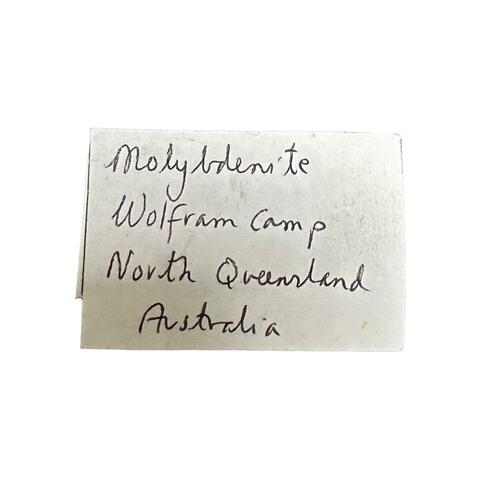 Molybdenite
Wolfram Camp
North Queensland
Australia